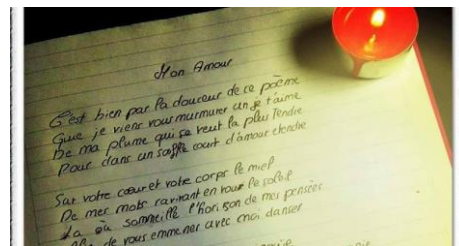 Mon Amour
C'est bien par la douceur de ce poème
Que je viens vous murmurer un je t'aime
De ma plume qui se veut la plus tendre
Pour dans un souffle court d'amour étendre
Sur votre cœur et votre corps le miel
De mes mots ravivant en vous le soleil
Là où sommeille l'horizon de mes pensées
de vous emmener avec moi danser